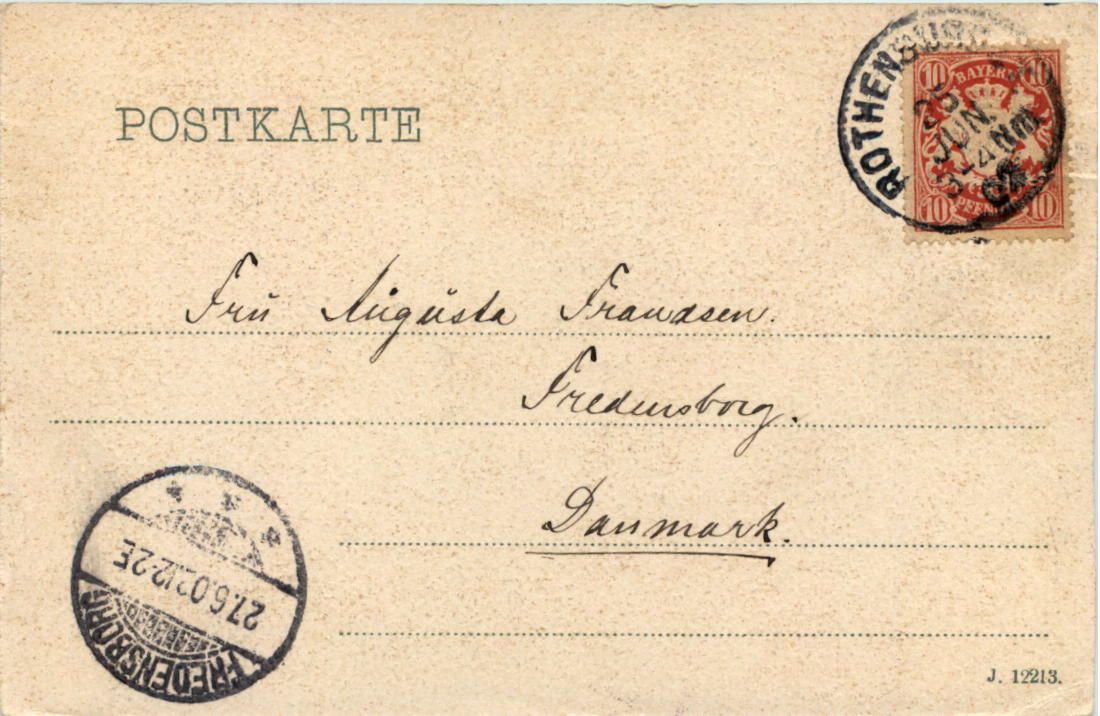 POSTKARTE
ROTHENBURG
25
JUN.
3-4 Nm
02
10 BAYERN 10
10 PFENNIG 10
Frú Augústa Frandsen.
Fredensborg.
Danmark.
27.6.02 12-2E
FREDENSBORG
J. 12213.